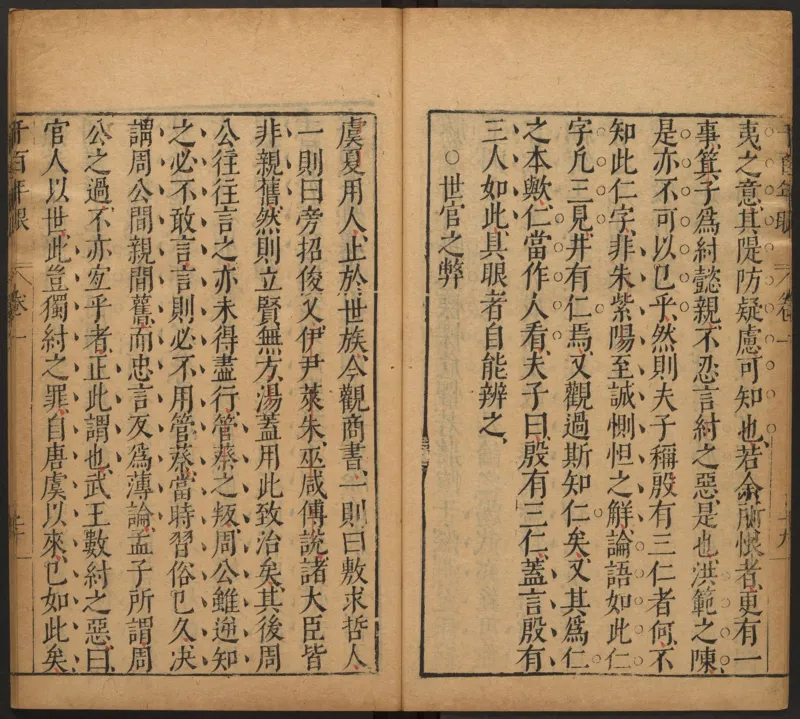 夷之意、其隄防疑慮可知也、若余所懷者、更有一
事、箕子爲紂懿親、不忍言紂之惡、是也、洪範之陳、
是亦不可以已乎、然則夫子稱殷有三仁者、何、不
知此仁字、非朱紫陽至誠惻怛之解、論語如此仁
字、凡三見、井有仁焉、又觀過斯知仁矣、又其爲仁
之本歟、仁當作人看、夫子曰、殷有三仁、蓋言殷有
三人如此、具眼者自能辨之、
○世官之弊
虞夏用人、止於世族、今觀商書、一則曰敷求哲人、
一則曰旁招俊乂、伊尹、萊朱、巫咸、傅說、諸大臣皆
非親舊、然則立賢無方、湯蓋用此致治矣、其後周
公往往言之、亦未得盡行、管蔡之叛、周公雖逆知
之、必不敢言、言則必不用、管蔡當時習俗已久、决
謂周公間親間舊、而忠言反爲薄論、孟子所謂周
公之過、不亦宐乎者、正此謂也、武王數紂之惡、曰、
官人以世、此豈獨紂之罪、自唐虞以來、已如此矣、
千百年眼 卷一